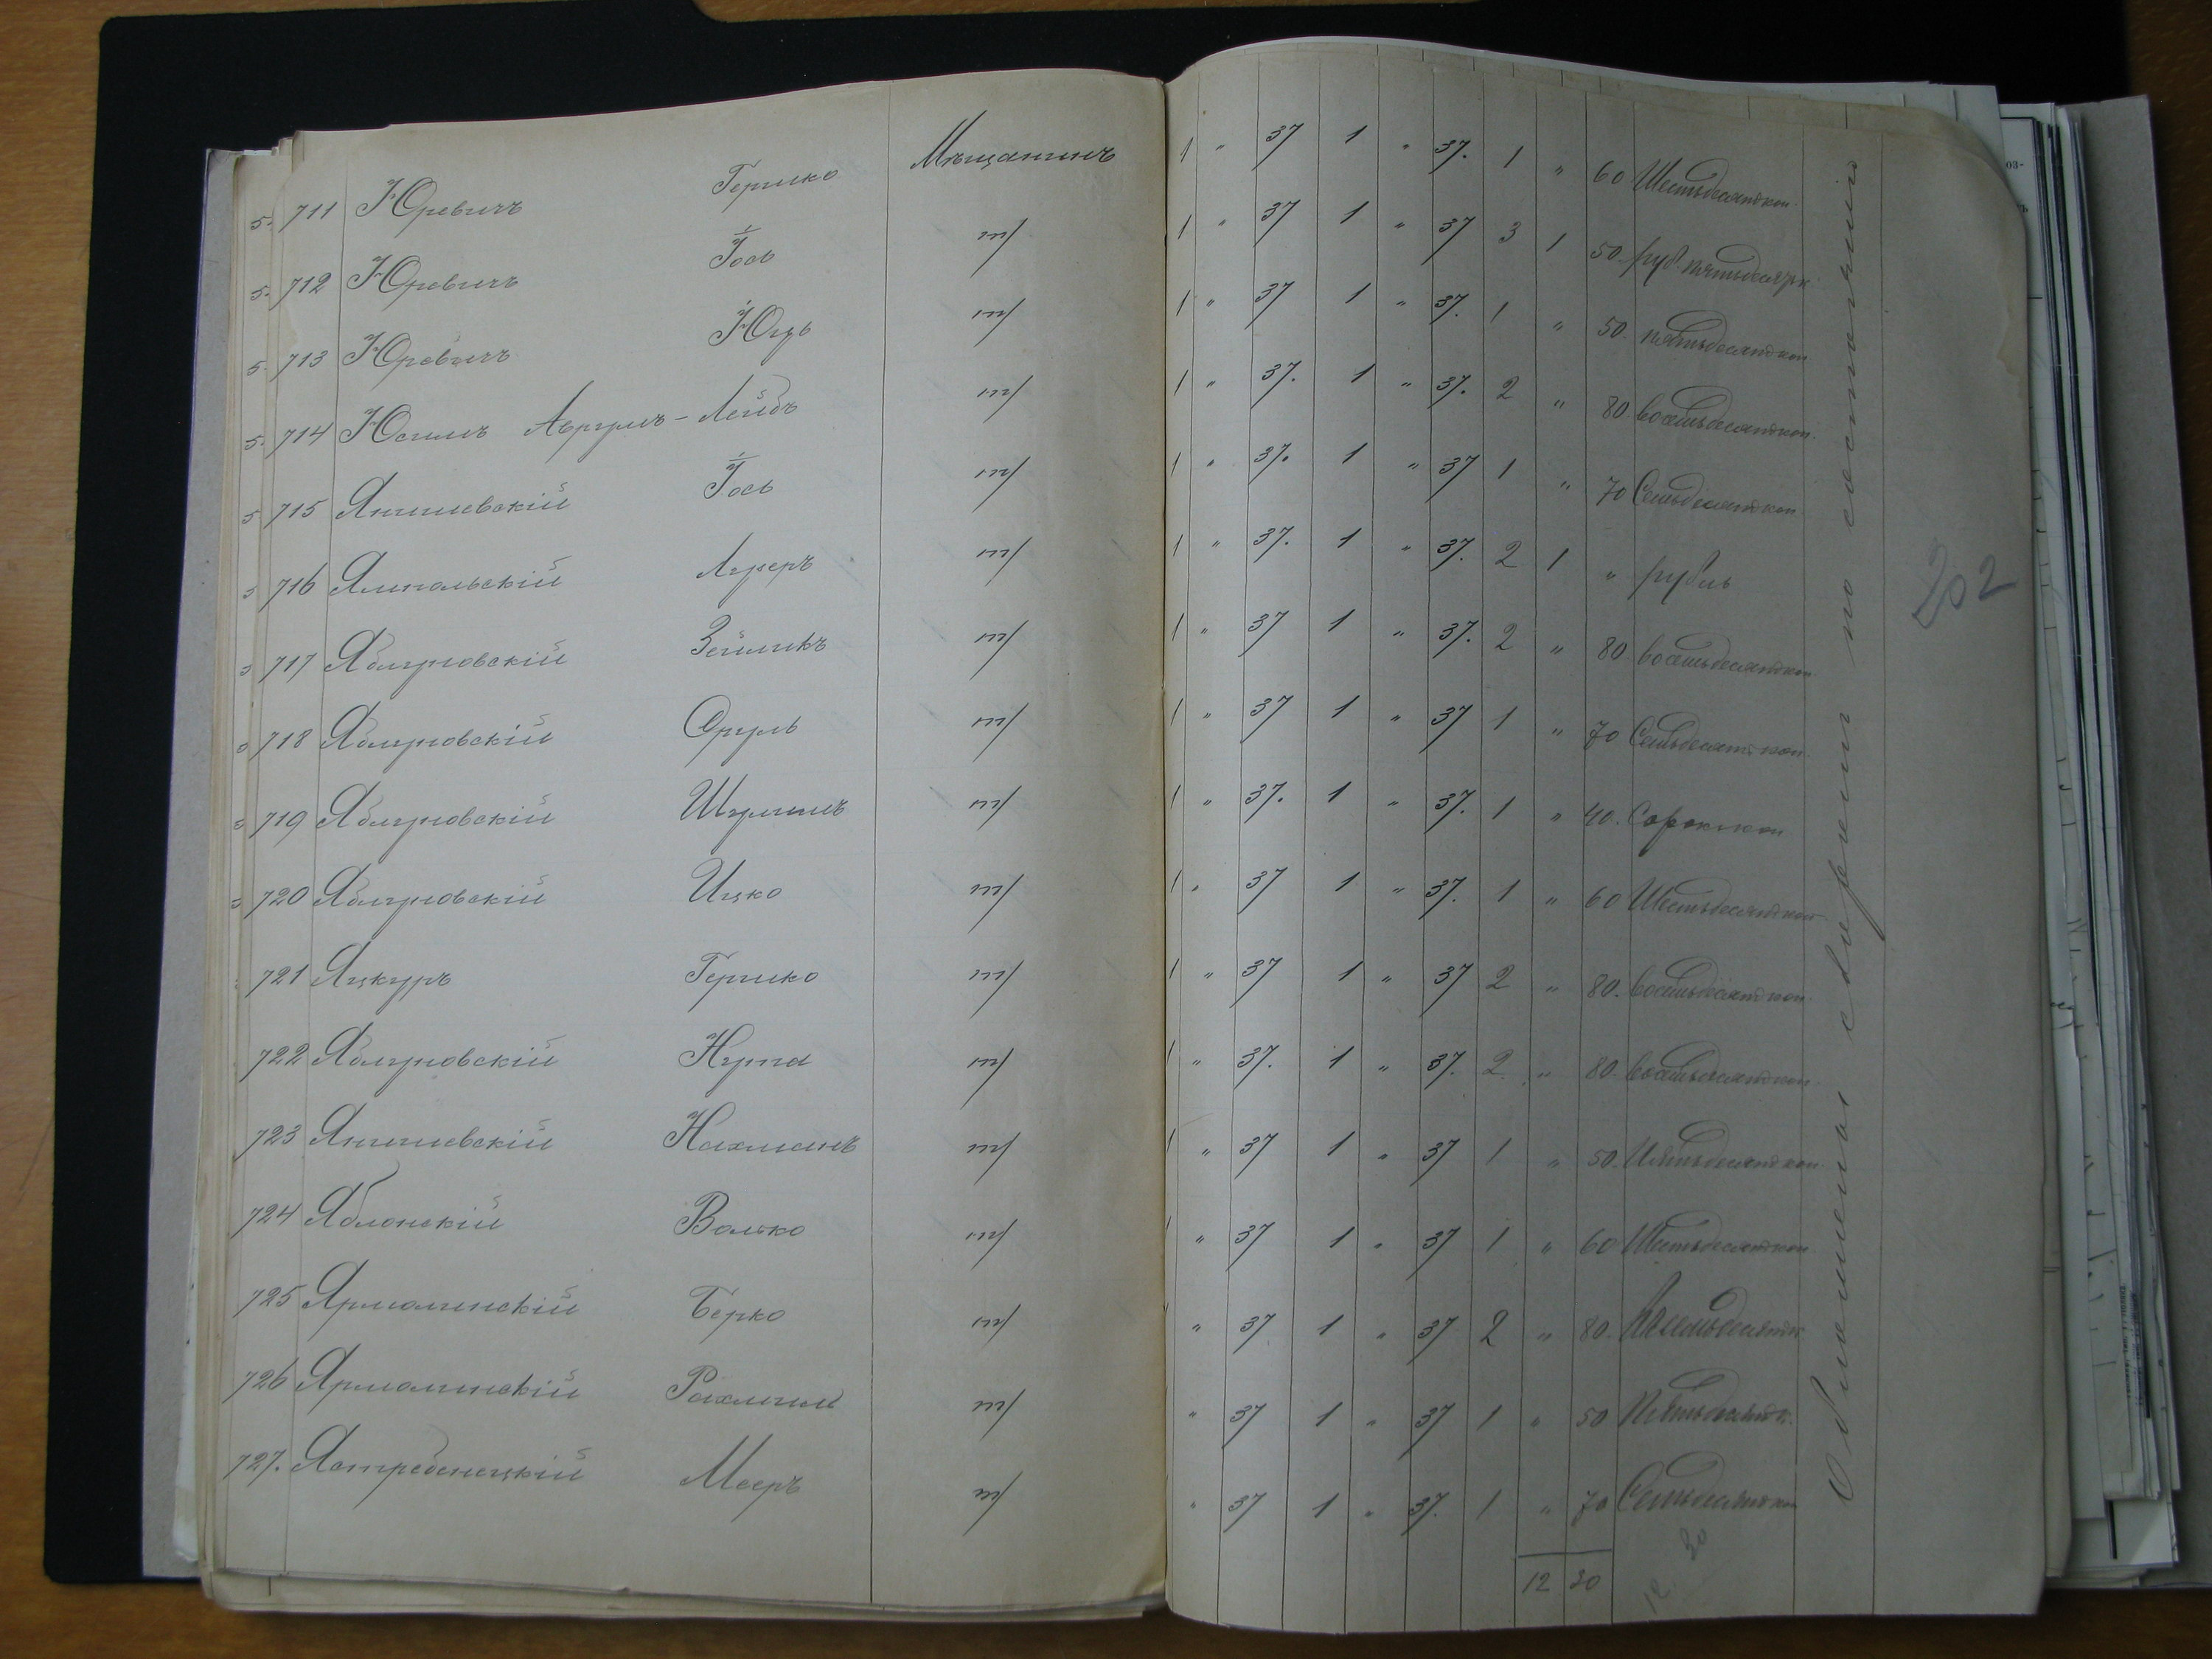 5. 711 Юревичъ Гершко Мѣщанинъ 1 " 37 1 " 37. 1 " 60 Шестьдесятъ коп.
5. 712 Юревичъ Іось т/ 1 " 37 1 " 37 3 1 50 руб. пятьдесят к
5. 713 Юревичъ т/ 1 " 37 1 " 37. 1 " 50. пятьдесятъ коп
5. 714 Юсимъ Аврумъ-Лейбъ т/ 1 " 37. 1 " 37. 2 " 80. восемьдесятъ коп.
5 715 Янишевскій Іось т/ 1 " 37. 1 " 37 1 " 70 Семьдесятъ коп
5 716 Ямпольскій Лузеръ т/ 1 " 37. 1 " 37. 2 1 " рубль
5 717 Яблуновскій Зейликъ т/ 1 " 37 1 " 37. 2 " 80 восемьдесятъ коп
5 718 Яблуновскій Сруль т/ 1 " 37 1 " 37 1 " 70 Семьдесят коп.
5 719 Яблуновскій Шулимъ т/ 1 " 37. 1 " 37. 1 " 40. Сорок коп
5 720 Яблуновскій Ицко т/ 1 " 37 1 " 37. 1 " 60 Шестьдесятъ коп
721 Яцкуръ Гершко т/ 1 " 37 1 " 37 2 " 80. восемьдесятъ коп.
722 Яблуновскій Нута т/ 1 " 37. 1 " 37. 2 " 80. восемьдесятъ коп.
723 Янишевскій Нахманъ т/ 1 " 37 1 " 37 1 " 50. Пятьдесятъ коп.
724 Яблонскій Волько т/ " 37 1 " 37 1 " 60 Шестьдесятъ коп
725 Ярмолинскій Берко т/ " 37 1 " 37 2 " 80. Восемьдесятъ к
726 Ярмолинскій Рахмил т/ " 37 1 " 37 1 " 50 Пятьдесятъ к.
727. Ястребенецкій Мееръ т/ " 37 1 " 37. 1 " 70 Семьдесятъ коп
12 30
12 30
202